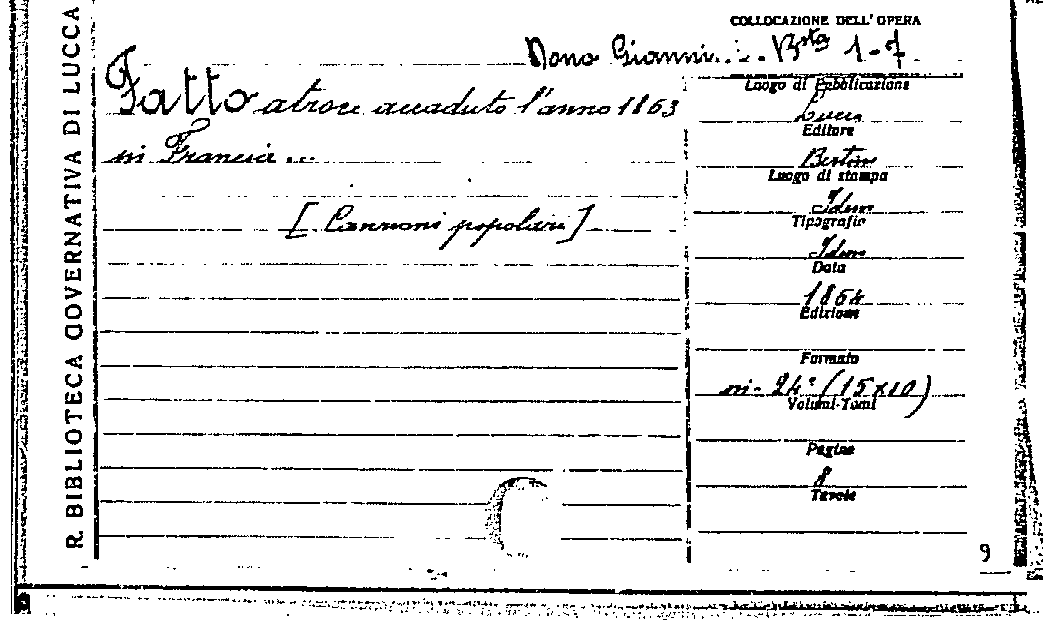 R. BIBLIOTECA GOVERNATIVA DI LUCCA
COLLOCAZIONE DELL'OPERA
Dono Gianni... Bsta 1-7
Fatto atroce accaduto l'anno 1863
in Francia ...
[Canzoni popolari]
Luogo di Pubblicazione
Lucca
Editore
Bertini
Luogo di stampa
Idem
Tipografia
Idem
Data
1864
Edizione
Formato
in-24° (15x10)
Volumi-Tomi
Pagine
8
Tavole
9